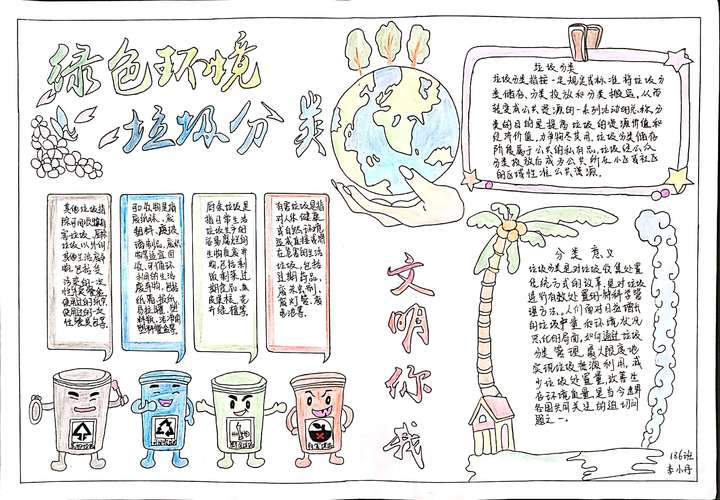 绿色环境
垃圾分类
垃圾分类
垃圾分类指按一定规定或标准将垃圾分
类储存、分类投放和分类搬运,从而
转变成公共资源的一系列活动的总称,分
类的目的是提高垃圾的资源价值和
经济价值,力争物尽其用,垃圾分类储存
阶段属于公众的私有品,垃圾经公众
分类投放后成为公众所在小区或社区
的区域性准公共资源。
其他垃圾指
除可回收
害垃圾、厨余
垃圾以外的
其他生活废弃
物,包括受
污染的一次
性餐具
使用过的纸尿
可回收物是指
废纸张、废
塑料、废玻
璃制品、
物等适宜回
收、可循环
利用的生活
废弃物,包括
纸箱、报纸、
易拉罐、塑
厨余垃圾是
指日常生活
垃圾产生的
容易腐烂的
生物质废弃
物,包括剩
饭剩菜,过
期食品,瓜
皮果核、花
卉绿植等
有害垃圾是指
对人体健康
或自然环境
造成直接或潜
在危害的生活
垃圾,包括
过期药品、
废杀虫剂、
废灯管、废
电池等。
文
明
你
我
分类意义
垃圾分类是对垃圾收集处置
传统方式的改革,是对垃圾
进行有效处置的一种科学管
理方法。人们面对日益增长
的垃圾产量和环境状况
恶化的局面,如何通过垃圾
分类管理,最大限度地
实现垃圾资源利用,减
少垃圾处置量,改善生
存环境质量,是当今世界
各国共同关注的迫切问
题之一。
186班
李小丹